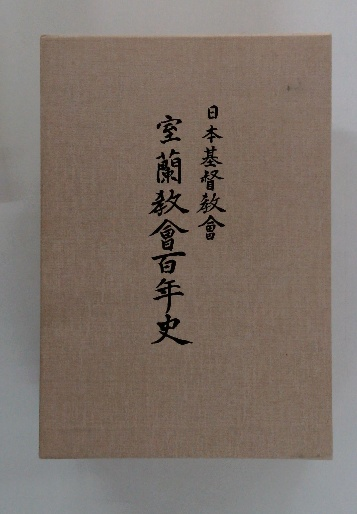 日本基督教會
室蘭教會百年史